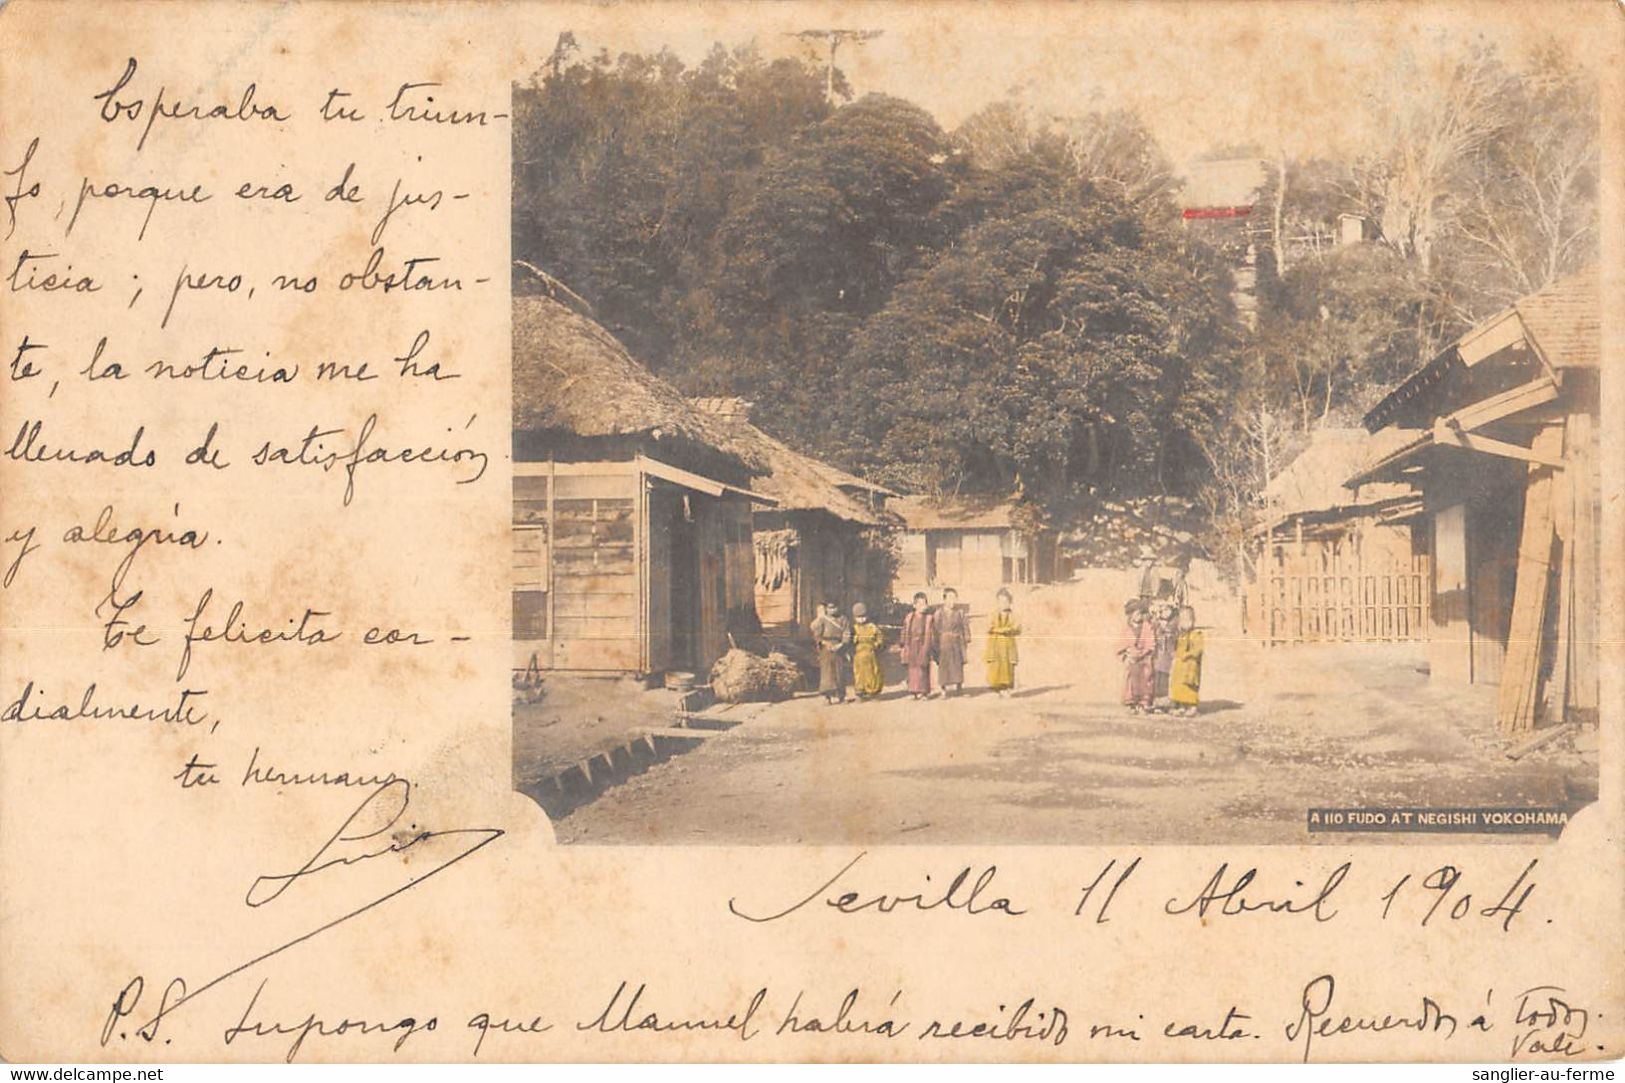 Esperaba tu triun-
fo, porque era de jus-
ticia; pero, no obstan-
te, la noticia me ha
llenado de satisfacción
y alegría.
Te felicita cor-
dialmente,
tu hermano
Luis
A 110 FUDO AT NEGISHI YOKOHAMA
Sevilla 11 Abril 1904.
P.S. Supongo que Manuel habrá recibido mi carta. Recuerdos á todos.
Vale.
delcampe.net
sanglier-au-ferme